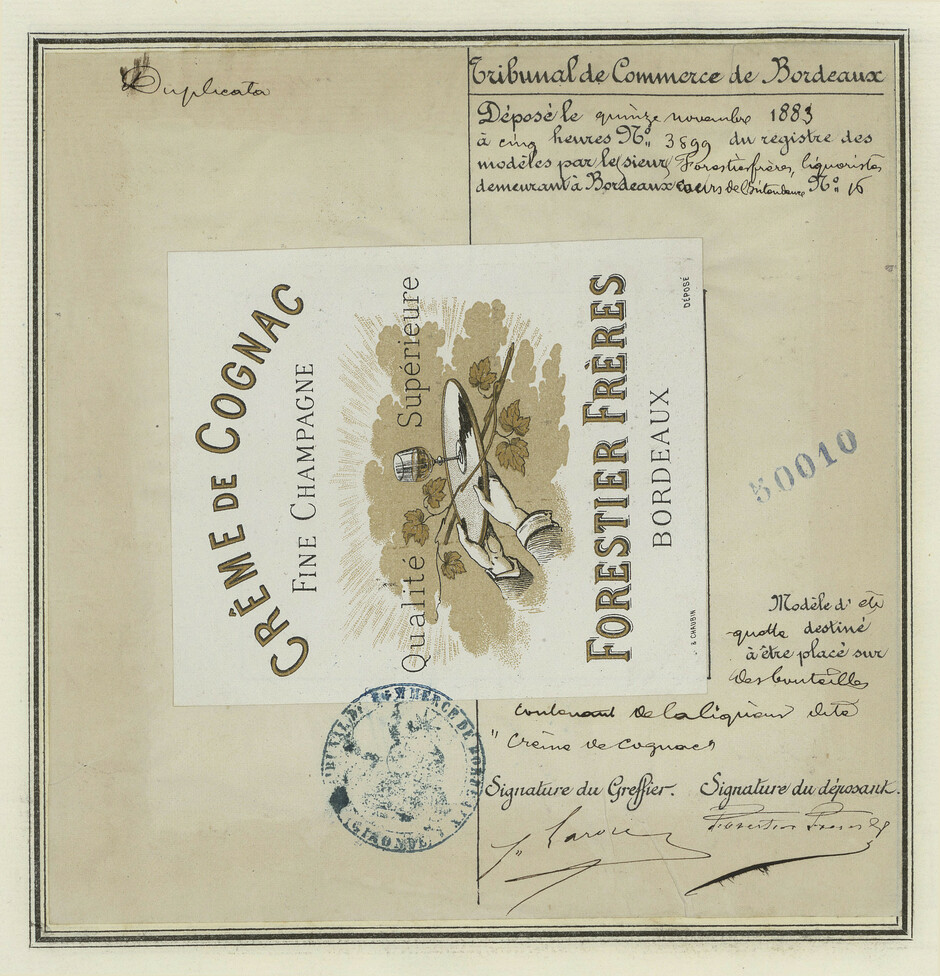 Duplicata
Tribunal de Commerce de Bordeaux
Déposé le quinze novembre 1883
à cinq heures No. 3899 du registre des
modèles par le sieur Forestier frères, liquoristes
demeurant à Bordeaux cours de l'intendance No. 16
CRÈME DE COGNAC
FINE CHAMPAGNE
Qualité Supérieure
FORESTIER FRÈRES
BORDEAUX
& CHAUBIN
DÉPOSÉ
50010
Modèle d'éti
quette destiné
à être placé sur
des bouteilles
contenant de la liqueur dite
"Crème de cognac"
TRIBUNAL DE COMMERCE DE BORDEAUX
(GIRONDE)
Signature du Greffier. Signature du déposant.
Forestier Frères